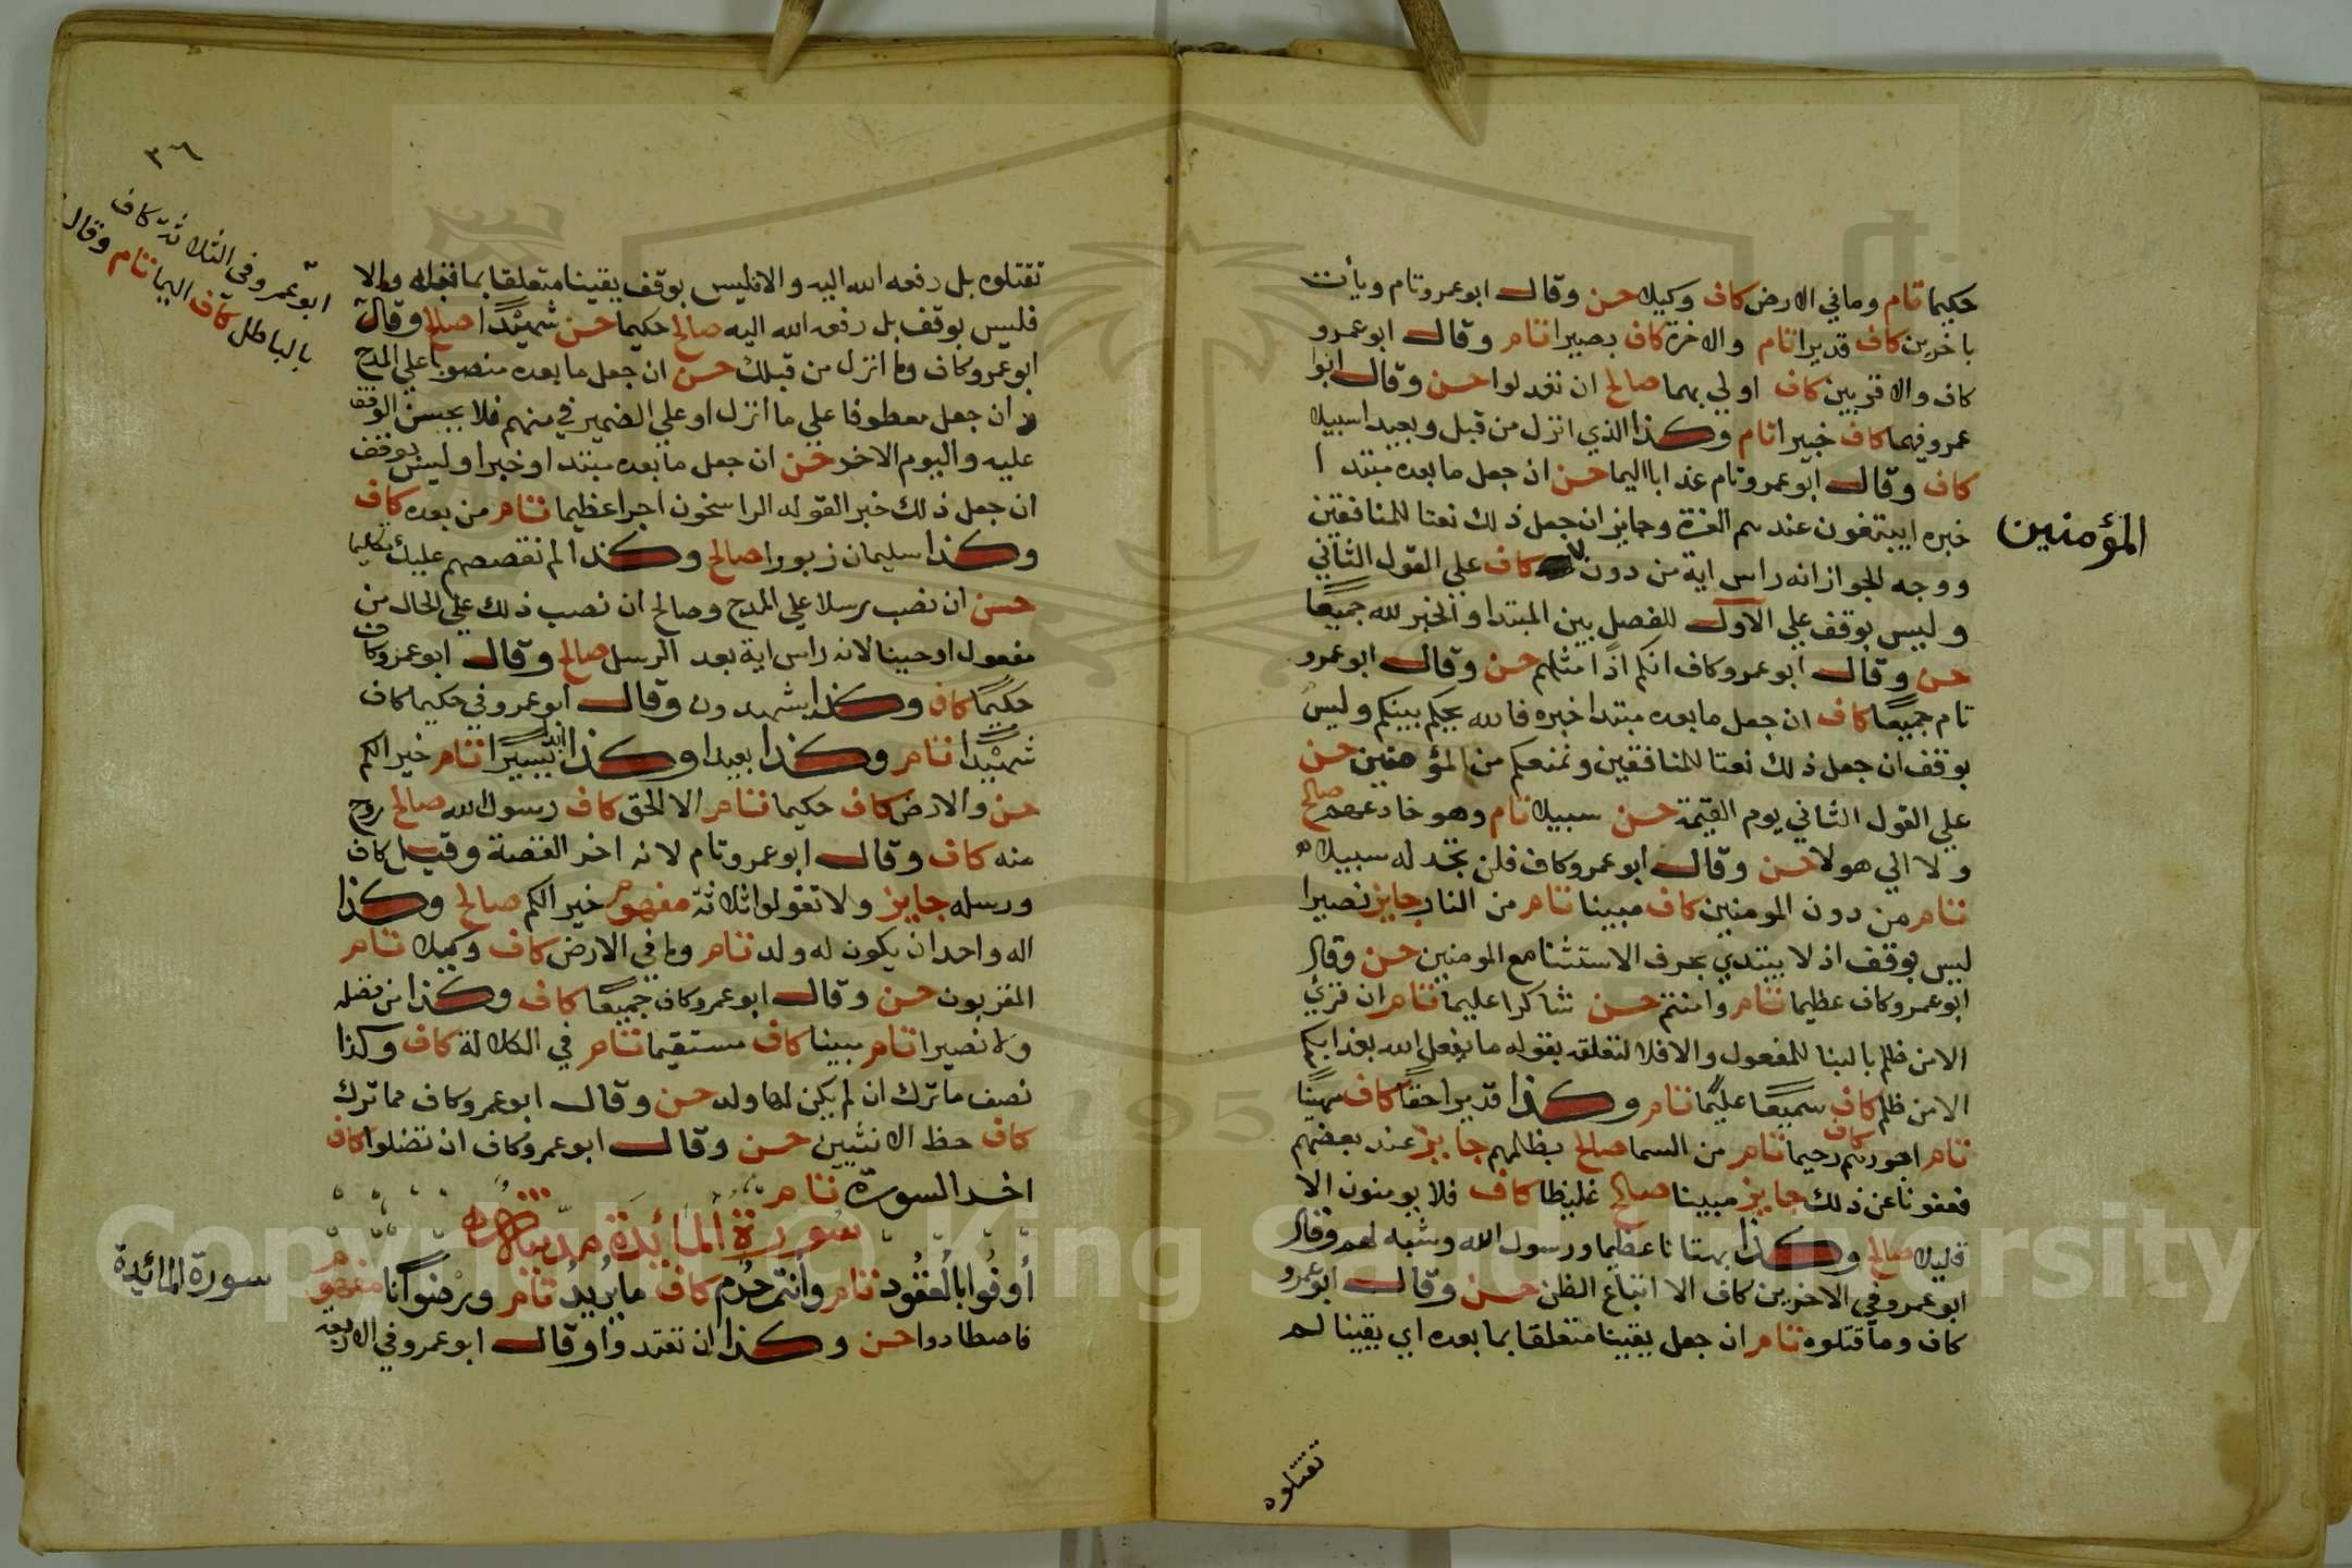 حكيما تام وما في الارض كاف وكيلا حسن وقال ابو عمرو تام ويأت
باخرين كاف قديرا تام والاخرة كاف بصيرا تام وقال ابو عمرو
كاف والاقربين كاف اولي بهما صالح ان تعدلوا حسن وقال ابوا
عمرو فيهما كاف خبيرا تام وكذا الذي انزل من قبل وبعيدا سبيلا
كاف وقال ابو عمرو تام عذابا اليما حسن ان جعل ما بعده مبتدا
خبره ايبتغون عندهم العزة وجايز ان جعل ذلك نعتا للمنافقين
ووجه الجواز انه راس اية من دون كاف علي القول الثاني
المؤمنين
وليس بوقف علي الاول للفصل بين المبتدا والخبر لله جميعا
حسن وقال ابو عمرو كاف انكم اذا مثلهم حسن وقال ابو عمرو
تام جميعا كاف ان جعل ما بعده مبتدا خبره فالله يحكم بينكم وليس
بوقف ان جعل ذلك نعتا للمنافقين ونمنعكم من المؤمنين حسن
علي القول الثاني يوم القيمة حسن سبيلا تام وهو خادعهم صالح
ولا الي هولا حسن وقال ابو عمرو كاف فلن تجد له سبيلا
تام من دون المومنين كاف مبينا تام من النار جايز نصيرا
ليس بوقف اذ لا يبتدي بحرف الاستثنا مع المومنين حسن وقال
ابو عمرو كاف عظيما تام وامنتم حسن شاكرا عليما تام ان قرئ
الا من ظلم بالبنا للمفعول والا فلا لتعلقه بقوله ما يفعل الله بعذابكم
الا من ظلم كاف سميعا عليما تام وكذا قديرا حقا كاف مهينا
تام اجورهم كاف رحيما تام من السما صالح بظلمهم جايز عند بعضهم
فعفونا عن ذلك جايز مبينا صالح غليظا كاف فلا يومنون الا
قليلا صالح وكذا بهتانا عظيما ورسول الله وشبه لهم وقال
ابو عمرو في الاخرين كاف الا اتباع الظن حسن وقال ابو عمرو
كاف وما قتلوه تام ان جعل يقينا متعلقا بما بعده اي يقينا لم
تقتلوه
٣٦
تقتلوه بل رفعه الله اليه والا فليس بوقف يقينا متعلقا بما قبله والا
فليس بوقف بل رفعه الله اليه صالح حكيما حسن شهيدا صالح وقال
ابو عمرو كاف وما انزل من قبلك حسن ان جعل ما بعده منصوبا علي المدح
وان جعل معطوفا علي ما انزل او علي الضمير في منهم فلا يحسن الوقف
عليه واليوم الاخر حسن ان جعل ما بعده مبتدا وخبرا وليس بوقف
ان جعل ذلك خبر القوله الراسخون اجرا عظيما تام من بعده كاف
وكذا سليمان زبورا صالح وكذا لم نقصصهم عليك تكليما
حسن ان نصب رسلا علي المدح وصالح ان نصب ذلك علي الحال من
مفعول اوحينا لانه راس اية بعد الرسل صالح وقال ابو عمرو كاف
حكيما كاف وكذا يشهدون وقال ابو عمرو في حكيما كاف
شهيدا تام وكذا بعيدا وكذا ابدا يسيرا تام خيرا لكم
حسن والارض كاف حكيما تام الا الحق كاف رسول الله صالح روح
منه كاف وقال ابو عمرو تام لانه اخر القصة وقيل كاف
ورسله جايز ولا تقولوا ثلاثة مفهوم خيرا لكم صالح وكذا
اله واحد ان يكون له ولد تام وما في الارض كاف وكيلا تام
المقربون حسن وقال ابو عمرو كاف جميعا كاف وكذا من فضله
ولا نصيرا تام مبينا كاف مستقيما تام في الكلالة كاف وكذا
نصف ما ترك ان لم يكن لها ولد حسن وقال ابو عمرو كاف مما ترك
كاف حظ الانثيين حسن وقال ابو عمرو كاف ان تضلوا كاف
اخر السورة تام
سورة المائدة مدنية
أوفوا بالعقود تام وأنتم حرم كاف ما يريد تام ورضوانا مفهوم
فاصطادوا حسن وكذا ان تعتدوا وقال ابو عمرو في الاربعة
سورة المائدة
ابو عمرو وفي الثلاثة كاف
بالباطل كاف اليما تام وقال